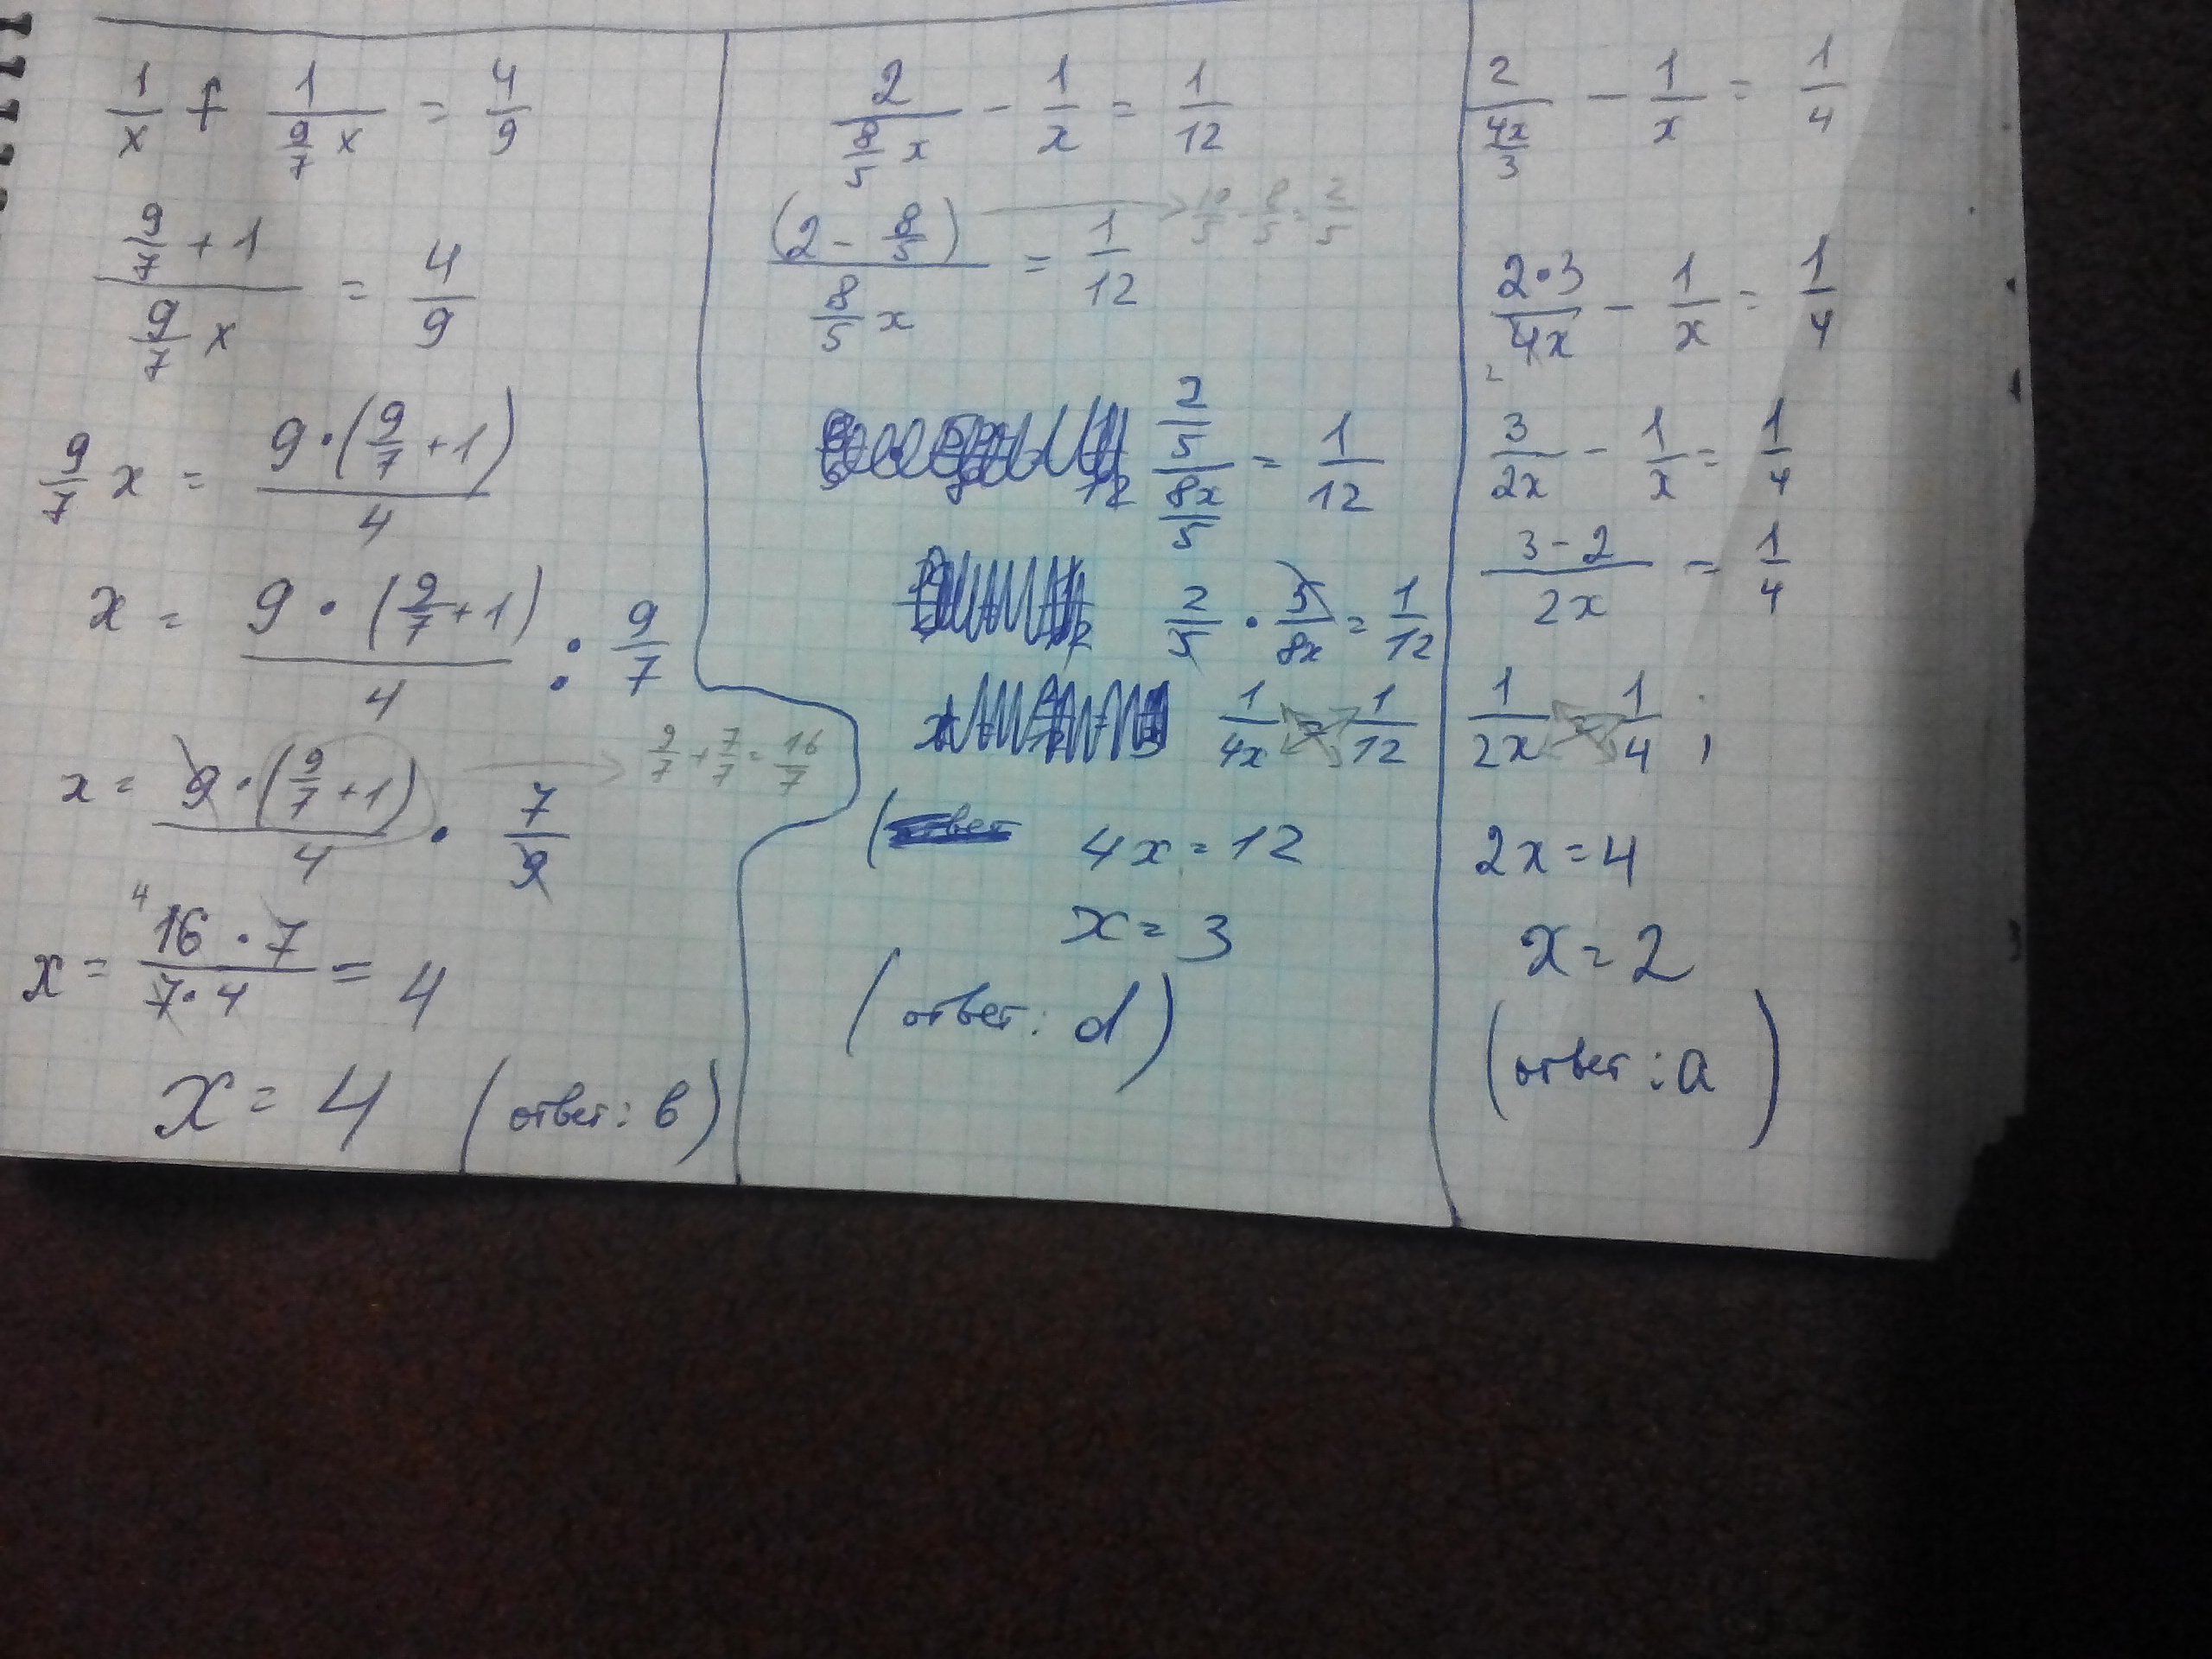 1/x + 1/(9/7 x) = 4/9
(9/7 + 1)/(9/7 x) = 4/9
9/7 x = 9·(9/7 + 1)/4
x = 9·(9/7 + 1)/4 : 9/7
x = 9·(9/7 + 1)/4 · 7/9 → 9/7 + 7/7 = 16/7
x = 16·7/7·4 = 4
4
x = 4 (ответ: в)
2/(8/5 x) - 1/x = 1/12
(2 - 8/5)/(8/5 x) = 1/12 → 10/5 - 8/5 = 2/5
(2/5)/(8x/5) = 1/12
2/5 · 5/8x = 1/12
1/4x = 1/12
4x = 12
x = 3
(ответ: d)
2/(4x/3) - 1/x = 1/4
2·3/4x - 1/x = 1/4
2
3/2x - 1/x = 1/4
3-2/2x = 1/4
1/2x = 1/4 ;
2x = 4
x = 2
(ответ: a)